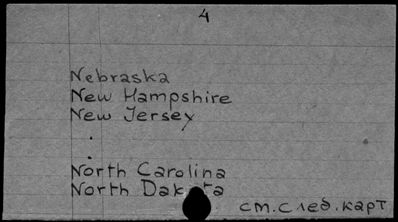 4
Nebraska
New Hampshire
New Jersey
.
.
North Carolina
North Dakota
см. след. карт